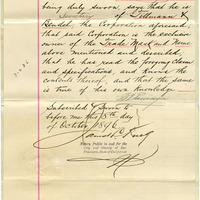 being duly sworn, says that he is
Secretary of Tillmann &
Bendel, the Corporation aforesaid,
that said Corporation is the exclusive
owner of the Trade Mark and Name
above mentioned and described,
that he has read the foregoing Claim
and specifications, and knows the
contents thereof, and that the same
is true of his own knowledge
Subscribed & Sworn to
before me this 15th day
of October 1896
Notary Public in and for the
City and County of San
Francisco, State of California